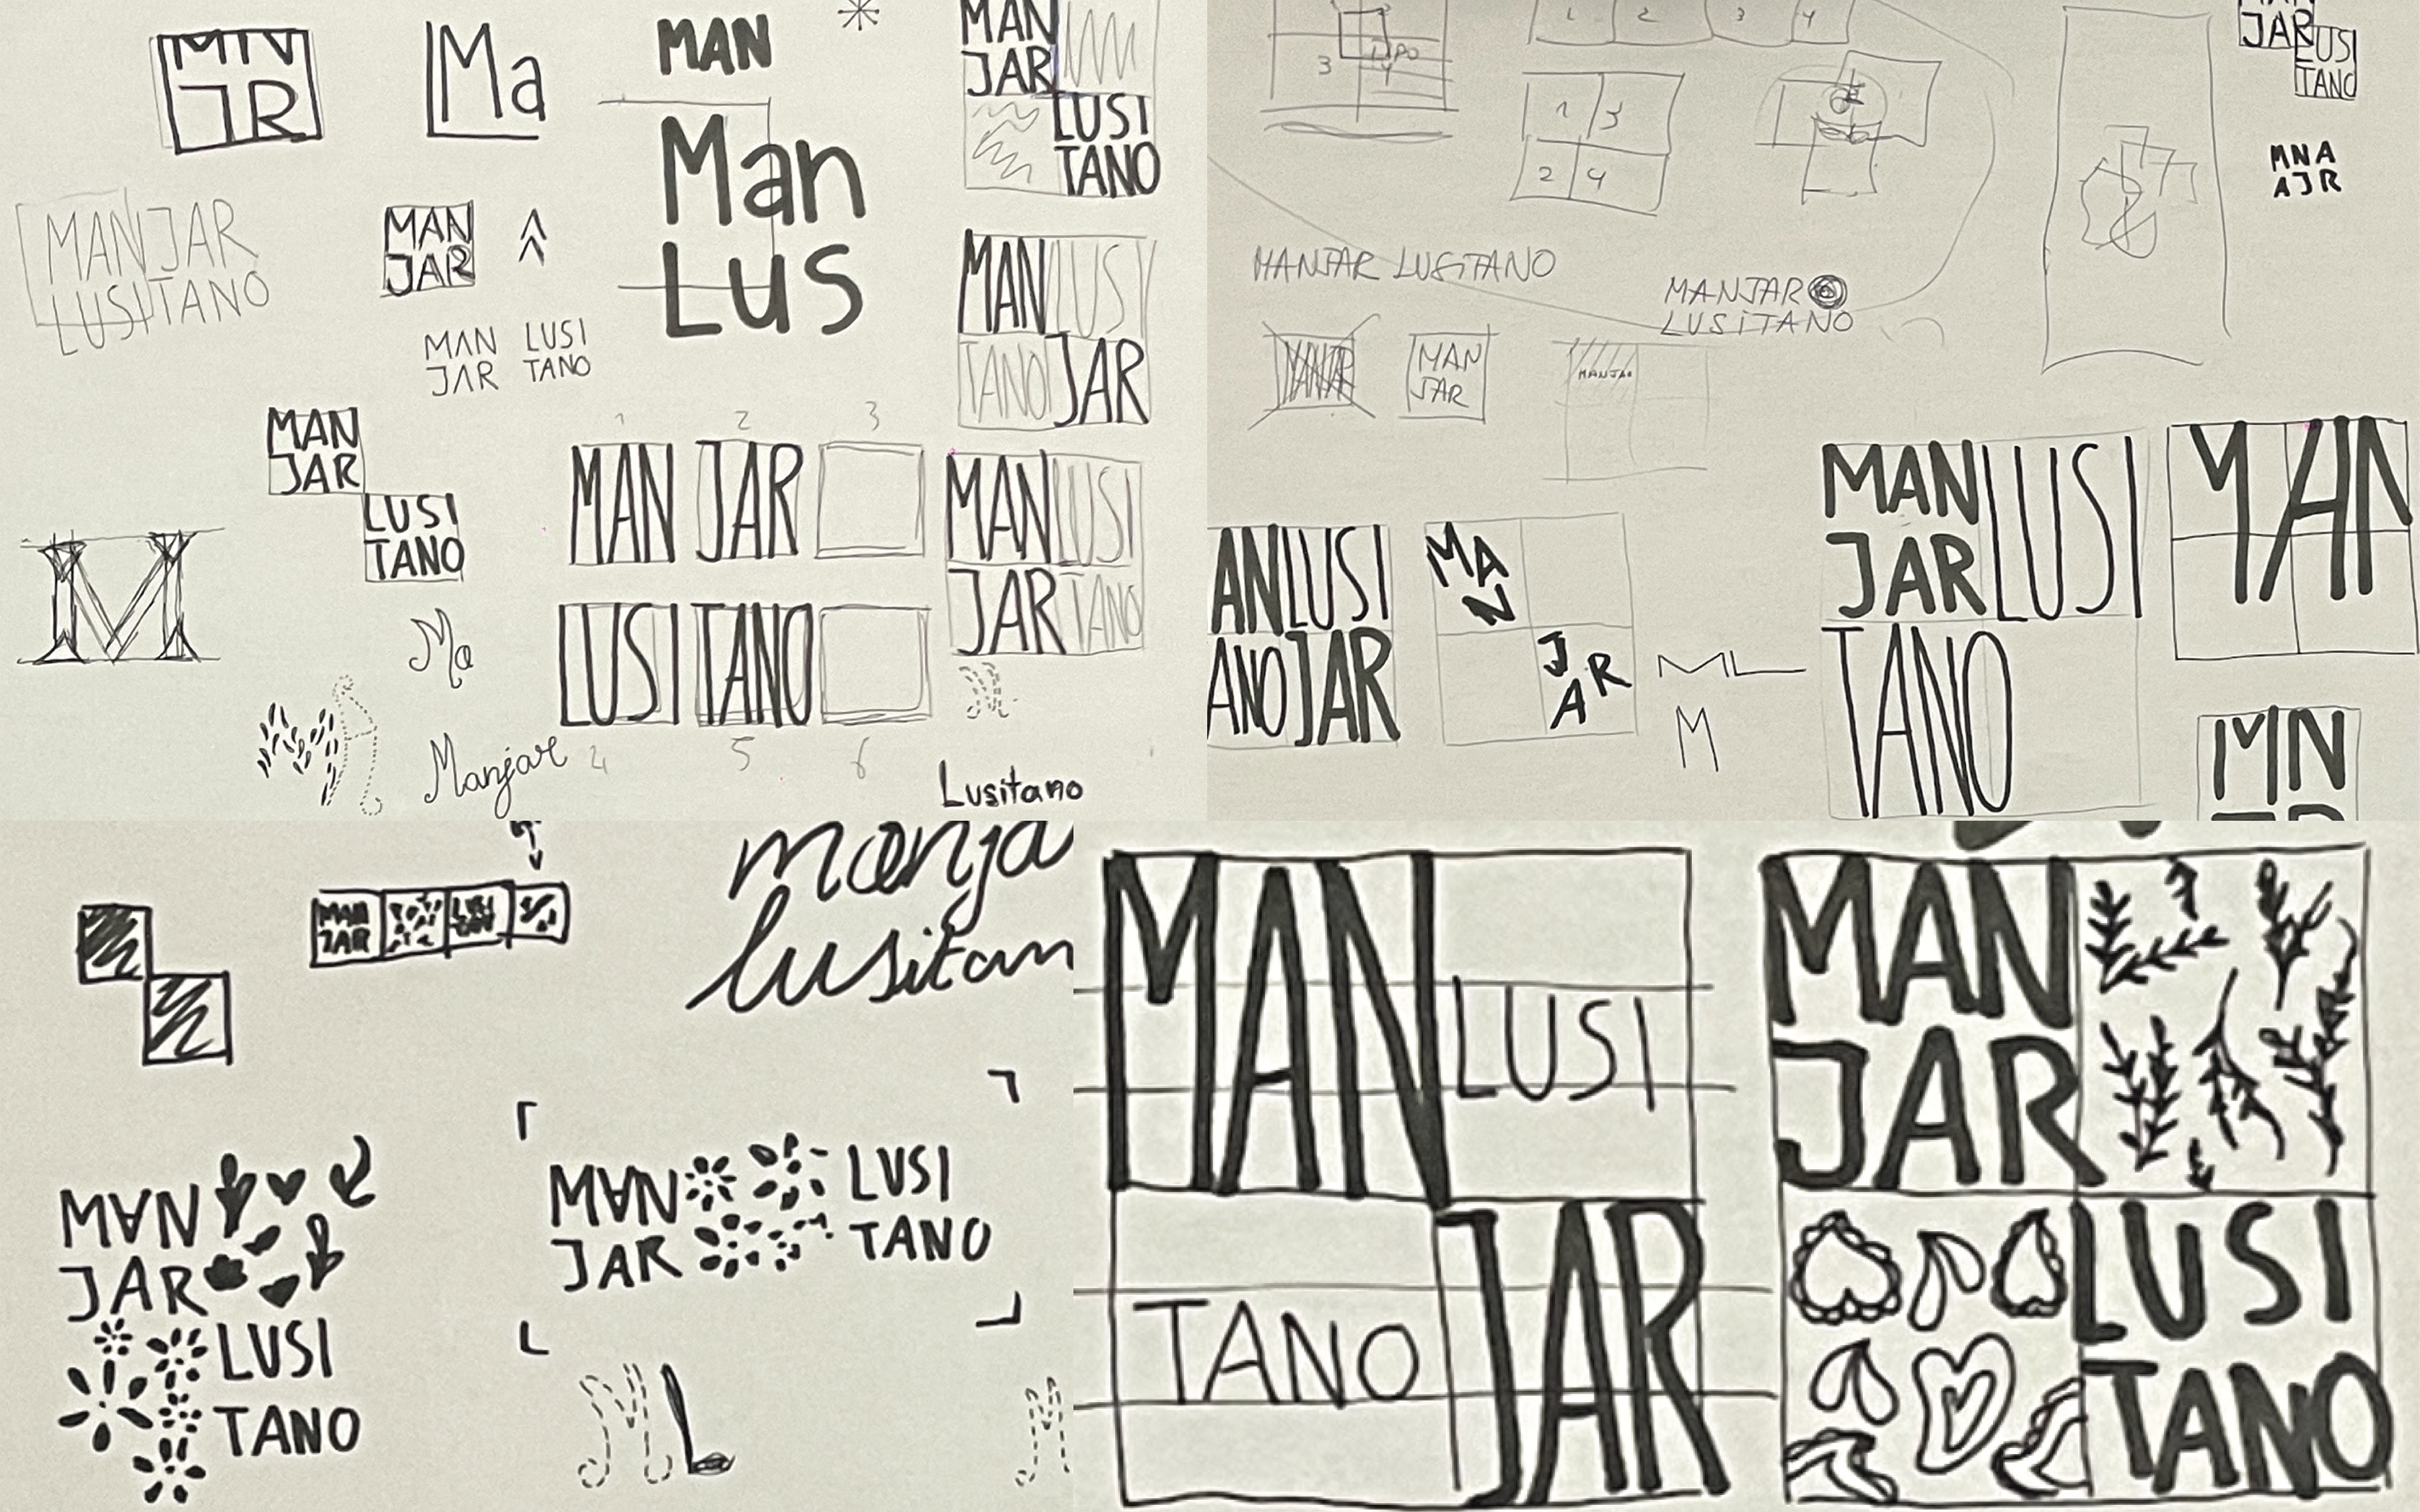 MN
JR
Ma
MAN
Man
Lus
MAN
JAR
LUSI
TANO
MANJAR
LUSITANO
MAN
JAR
MAN LUSI
JAR TANO
MAN LUSI
TANO JAR
MAN
JAR
LUSI
TANO
1 2 3
MAN JAR
LUSI TANO
4 5 6
MAN LUSI
JAR TANO
M
Ma
M
Manjar
M
Lusitano
3
4
1 2 3 4
1 3
2 4
JAR
LUSI
TANO
MNA
AJR
MANJAR LUSITANO
MANJAR
LUSITANO
MANJAR
MAN
JAR
MANJAR
AN LUSI
ANO JAR
MAN
JAR
ML
M
MAN
JAR
LUSI
TANO
MAN
MN
MAN
JAR
LUSI
TANO
manja
lusitan
MAN
JAR
LUSI
TANO
MAN
JAR
LUSI
TANO
ML
M
MAN LUSI
TANO JAR
MAN
JAR
LUSI
TANO